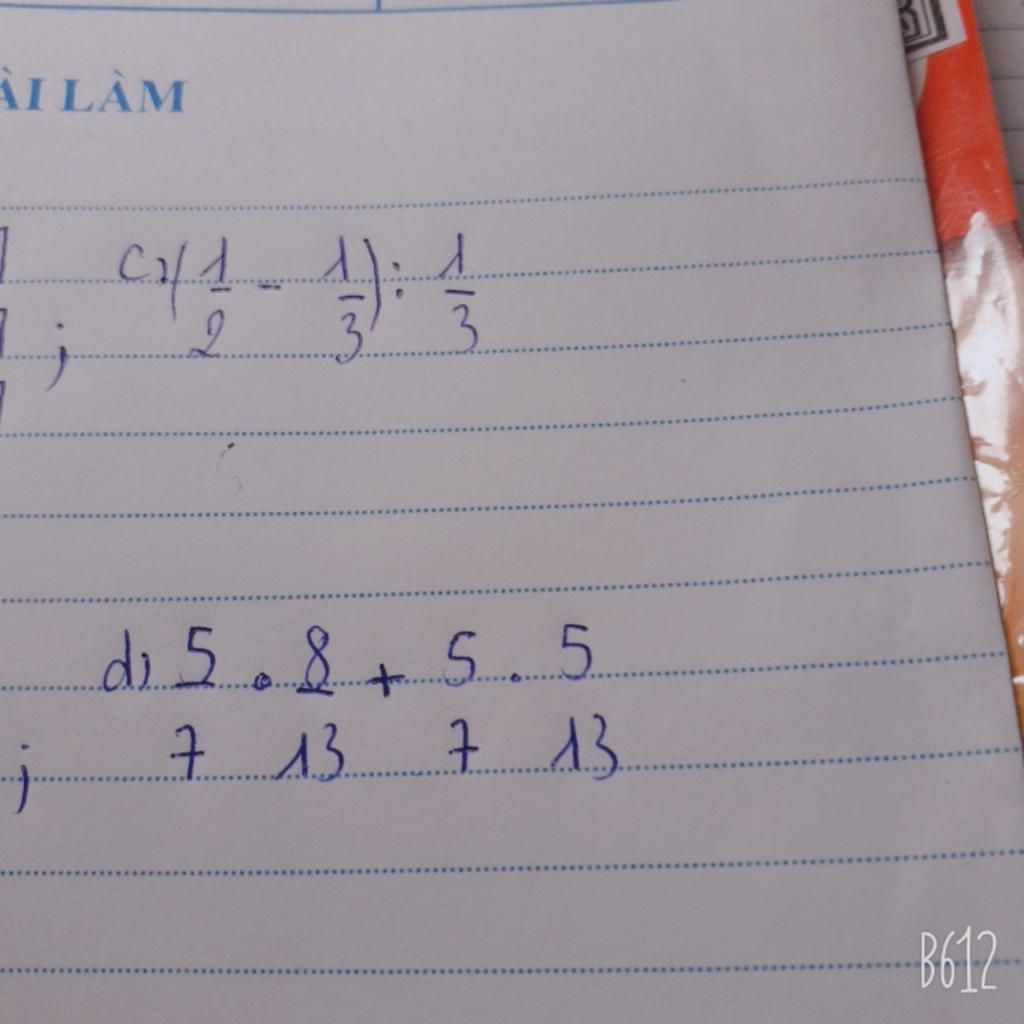 ÀI LÀM
; c) (1/2 - 1/3) : 1/3
; d) 5/7 . 8/13 + 5/7 . 5/13
B612